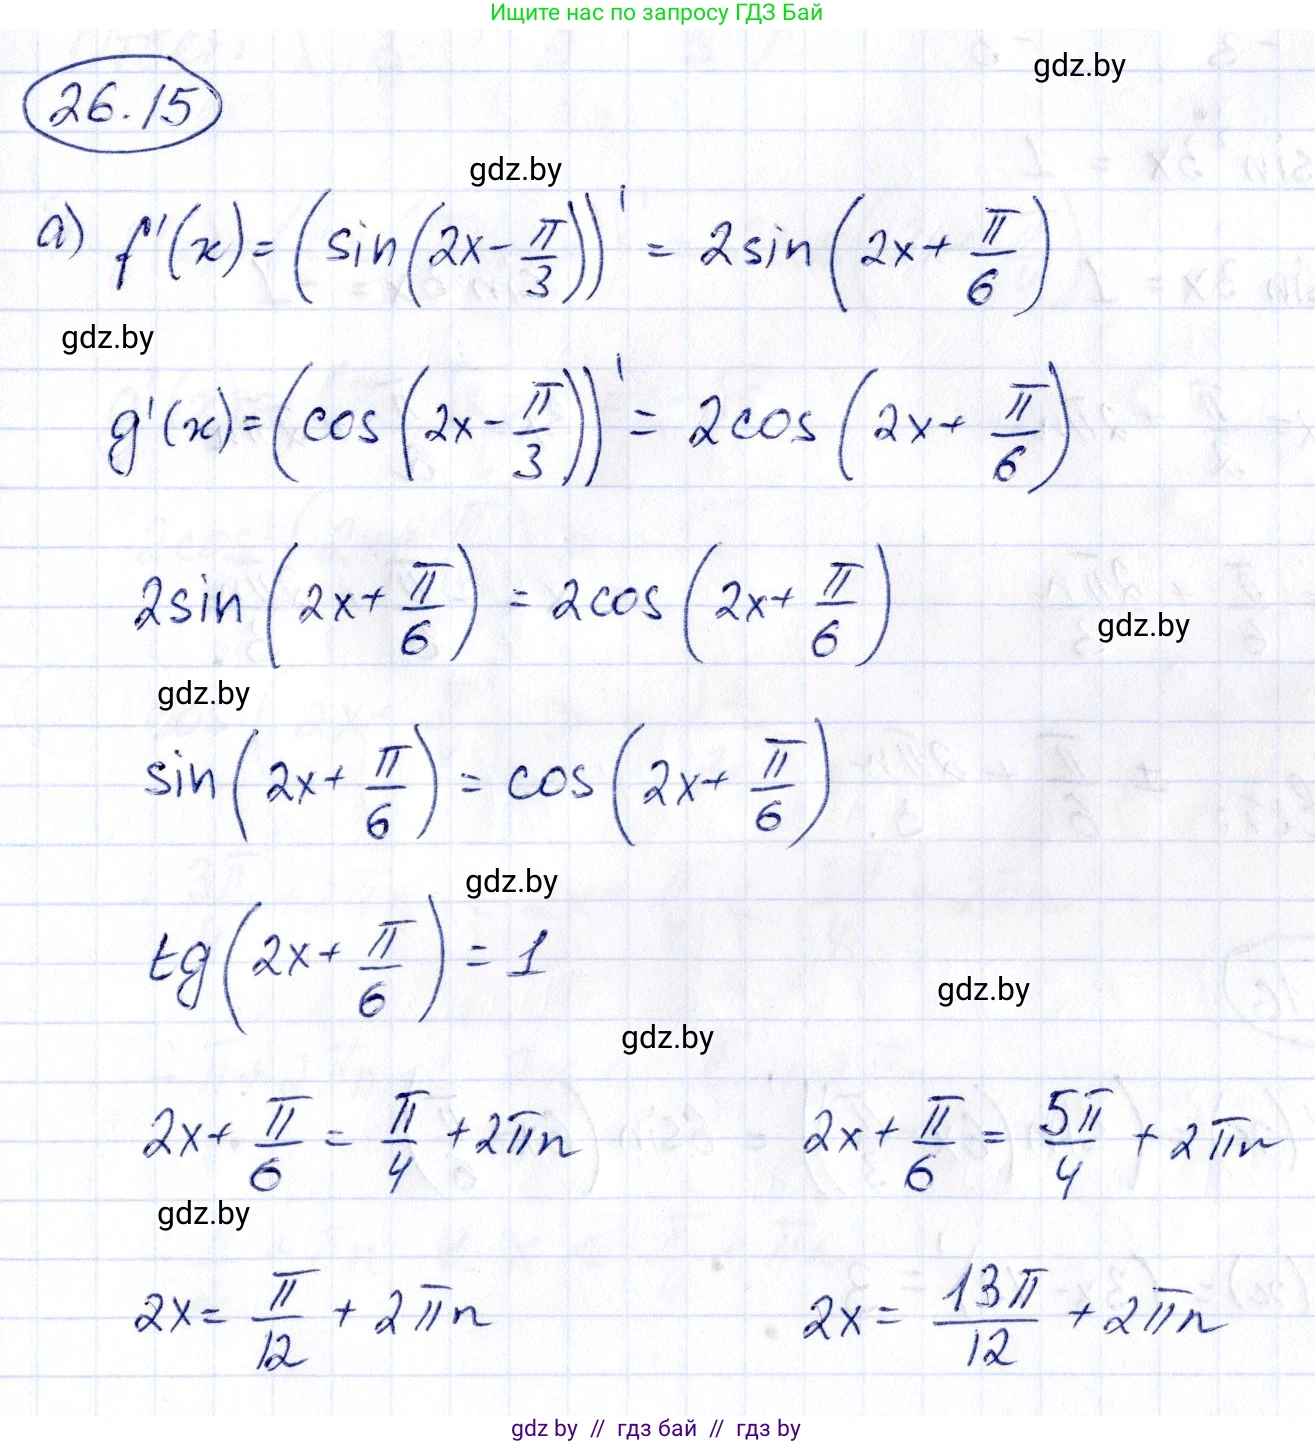 Ищите нас по запросу ГДЗ Бай
gdz.by
26.15
gdz.by
а) f'(x) = (sin(2x - π/3))' = 2sin(2x + π/6)
gdz.by
g'(x) = (cos(2x - π/3))' = 2cos(2x + π/6)
2sin(2x + π/6) = 2cos(2x + π/6)
gdz.by
gdz.by
sin(2x + π/6) = cos(2x + π/6)
gdz.by
tg(2x + π/6) = 1
gdz.by
gdz.by
2x + π/6 = π/4 + 2πn 2x + π/6 = 5π/4 + 2πn
gdz.by
2x = π/12 + 2πn 2x = 13π/12 + 2πn
gdz by // гдз бай // гдз by